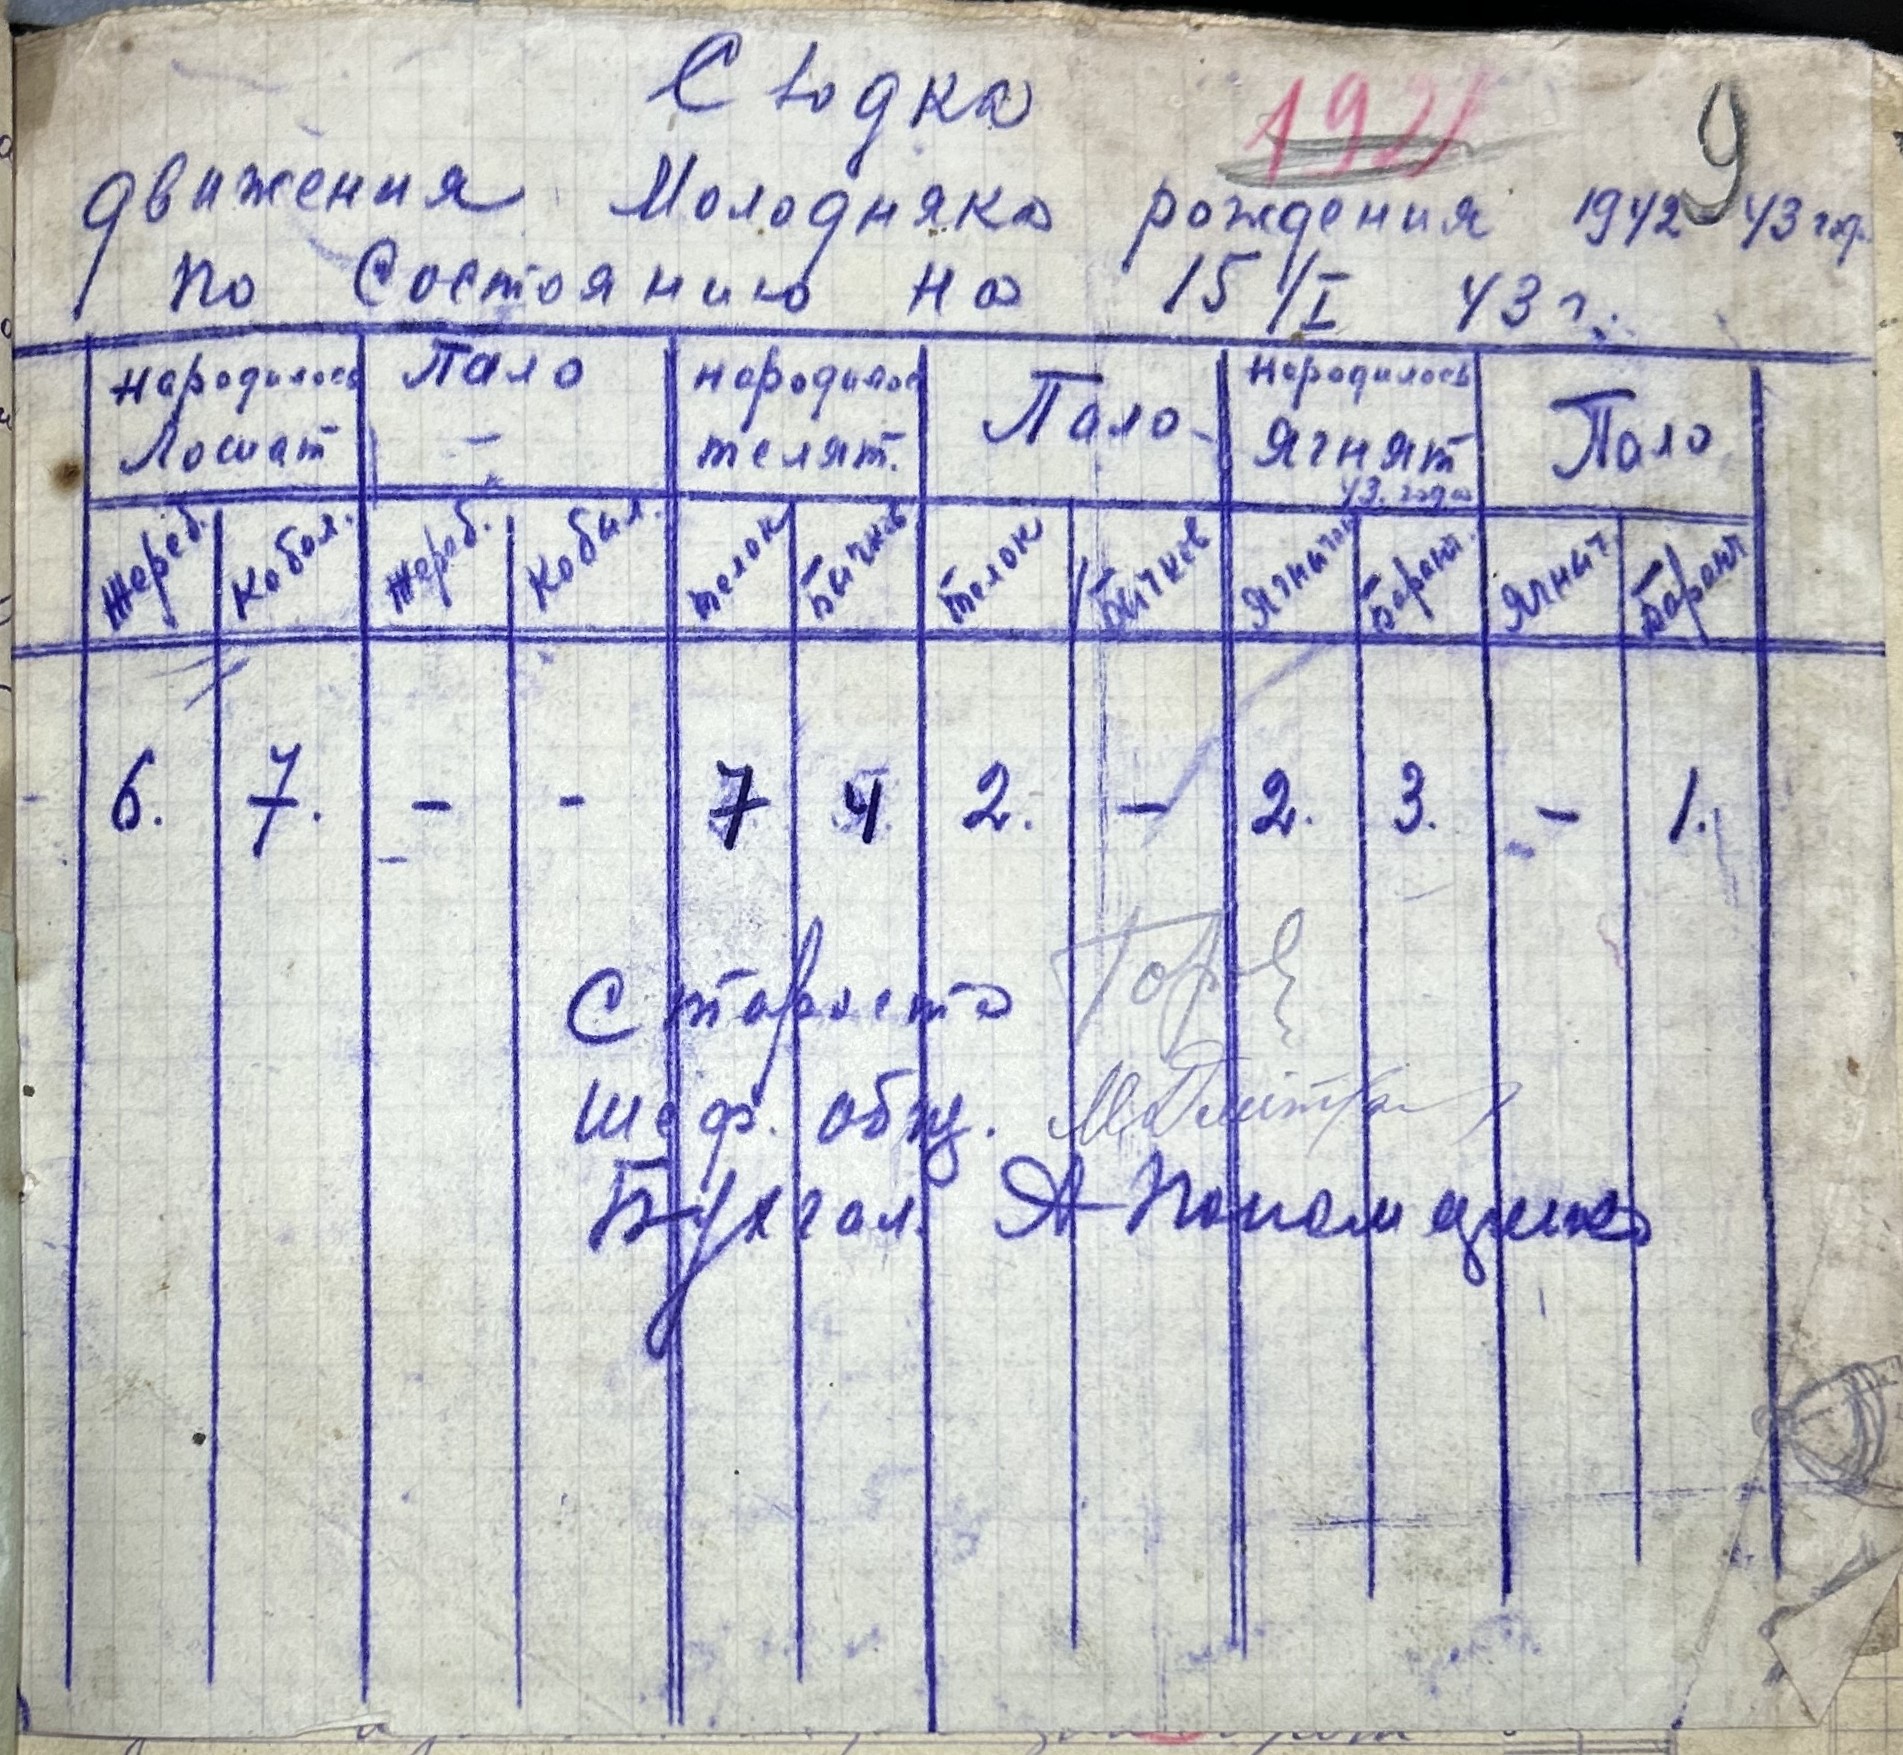 Сводка
192
9
движения Молодняка рождения 1942-43 год.
по Состоянию на 15/I 43 г.
народилось Лошат | Пало - | народилос телят. | Пало | народилось Ягнят 43. года | Пало
Жереб. | Кобыл. | Жереб. | Кобыл. | телок | Бычков | телок | Бычков | Ягнычок | Баранч. | Ягныч. | Баранч
6. | 7. | - | - | 7 | 4 | 2. | - | 2. | 3. | - | 1.
Староста
Шеф. общ.
Бухгал. А Пономаренко